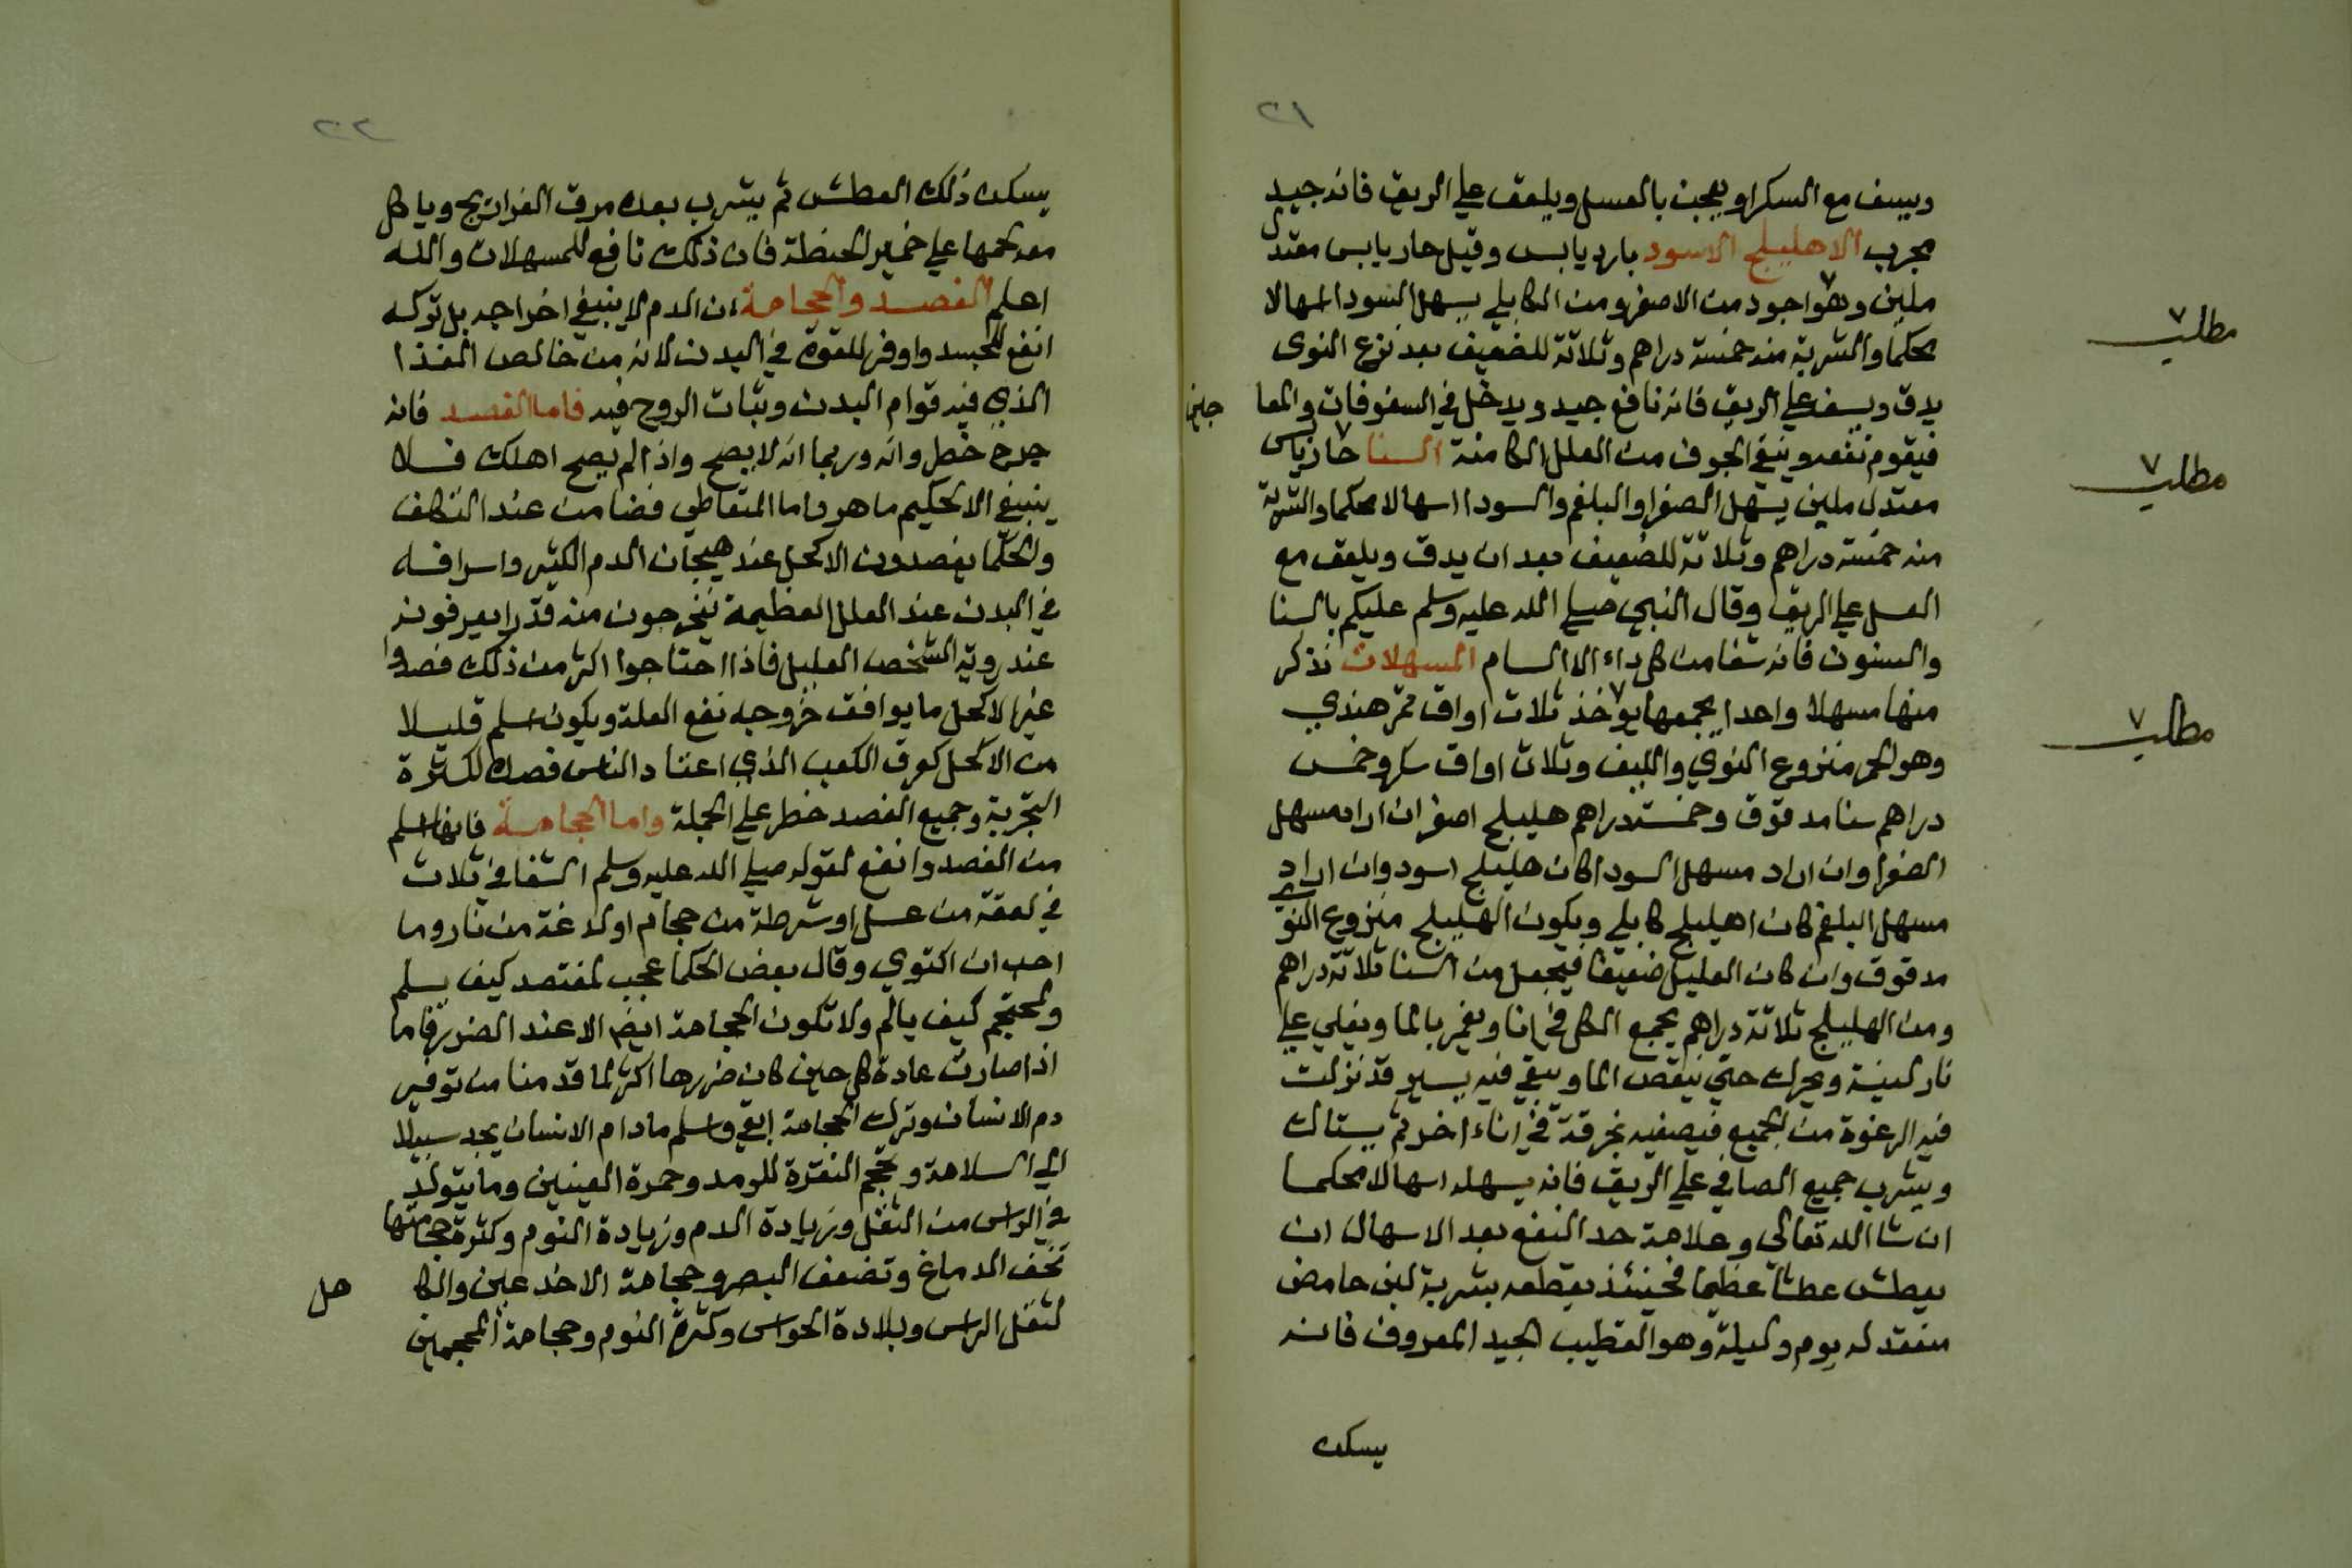 ٢١
ويسف مع السكر او يعجن بالعسل ويلعق علي الريق فانه جيد
مجرب الاهليلج الاسود بارد يابس وقيل حار يابس معتدل
ملين وهو اجود من الاصفر ومن الكابلي يسهل السودا اسهالا
مطلب
محكما والشربة منه خمسة دراهم وثلاثة للضعيف بعد نزع النوى
يدق ويسف علي الريق فانه نافع جيد ويدخل في السفوفات والمعا
جين
فيقوم نفعه وينقي الجوف من العلل الكامنة السنا حار يابس
مطلب
معتدل ملين يسهل الصفرا والبلغم والسودا اسهالا محكما والشربة
منه خمسة دراهم وثلاثة للضعيف بعد ان يدق ويلعق مع
العسل علي الريق وقال النبي صلي الله عليه وسلم عليكم بالسنا
والسنون فانه شفا من كل داء الا السام المسهلات نذكر
منها مسهلا واحدا يجمعها يوخذ ثلاث اواق تمر هندي
مطلب
وهو الحمر منزوع النوي والليف وثلاث اواق سكر وخمس
دراهم سنا مدقوق وخمسة دراهم هليلج اصفر ان اراد مسهل
الصفرا وان اراد مسهل السودا كان هليلج اسود وان اراد
مسهل البلغم كان اهليلج كابلي ويكون الهليلج منزوع النوي
مدقوق وان كان العليل ضعيفا فيجعل من السنا ثلاثة دراهم
ومن الهليلج ثلاثة دراهم يجمع الكل في انا ويغمر بالما ويغلي علي
نار لينة ويحرك حتي ينقص الما ويبقي فيه يسير قد نزلت
فيه الرغوة من الجميع فيصفيه بخرقة في اناء اخر ثم يستاك
ويشرب جميع الصافي علي الريق فانه يسهله اسهالا محكما
ان شا الله تعالى وعلامة حد النفع بعد الاسهال ان
يعطش عطشا عظيما فحينئذ يقطعه بشربة لبن حامض
منعقد له يوم وليلة وهو القطيب الجيد المعروف فانه
يسكن
٢٢
يسكن ذلك العطش ثم يشرب بعده مرق الفراريج وياكل
معه لحمها علي خمير الحنطة فان ذلك نافع للمسهلات والله
اعلم الفصد والحجامة ان الدم لا ينبغي اخراجه بل تركه
انفع للجسد واوفر للقوة في البدن لانه من خالص الغذا
الذي فيه قوام البدن وثبات الروح فيه فاما الفصد فانه
جرح خطر وانه وربما انه لا يصح واذا لم يصح اهلك فلا
ينبغي الا لحكيم ماهر واما المتعاطي فضامن عند التكلف
والحكما يفصدون الاكحل عند هيجان الدم الكثير واسرافه
في البدن عند العلل العظيمة فيخرجون منه قدرا يعرفونه
عند روية الشخص العليل فاذا احتاجوا اكثر من ذلك فصدوا
غير الاكحل ما يوافق خروجه نفع العلة ويكون اسلم قليلا
من الاكحل كعرق الكعب الذي اعتاد الناس فصده لكثرة
التجربة وجميع الفصد خطر علي الجملة واما الحجامة فانها اسلم
من الفصد وانفع لقوله صلي الله عليه وسلم الشفا في ثلاث
في لعقة من عسل او شرطة من حجام او لدغة من نار وما
احب ان اكتوي وقال بعض الحكما عجب لمفتصد كيف يسلم
ولمحتجم كيف يالم ولا تكون الحجامة ايضا الا عند الضرر فاما
اذا صارت عادة كل حين كان ضررها اكثر لما قدمنا من توفير
دم الانسان وترك الحجامة ابقي واسلم ما دام الانسان يجد سبيلا
الي السلامة وتحجم النقرة للرمد وحمرة العينين وما يتولد
في الراس من الثقل وزيادة الدم وزيادة النوم وكثرة حجامتها
تخف الدماغ وتضعف البصر وحجامة الاخدعين والكا
هل
لثقل الراس وبلادة الحواس وكثرة النوم وحجامة المحجمين